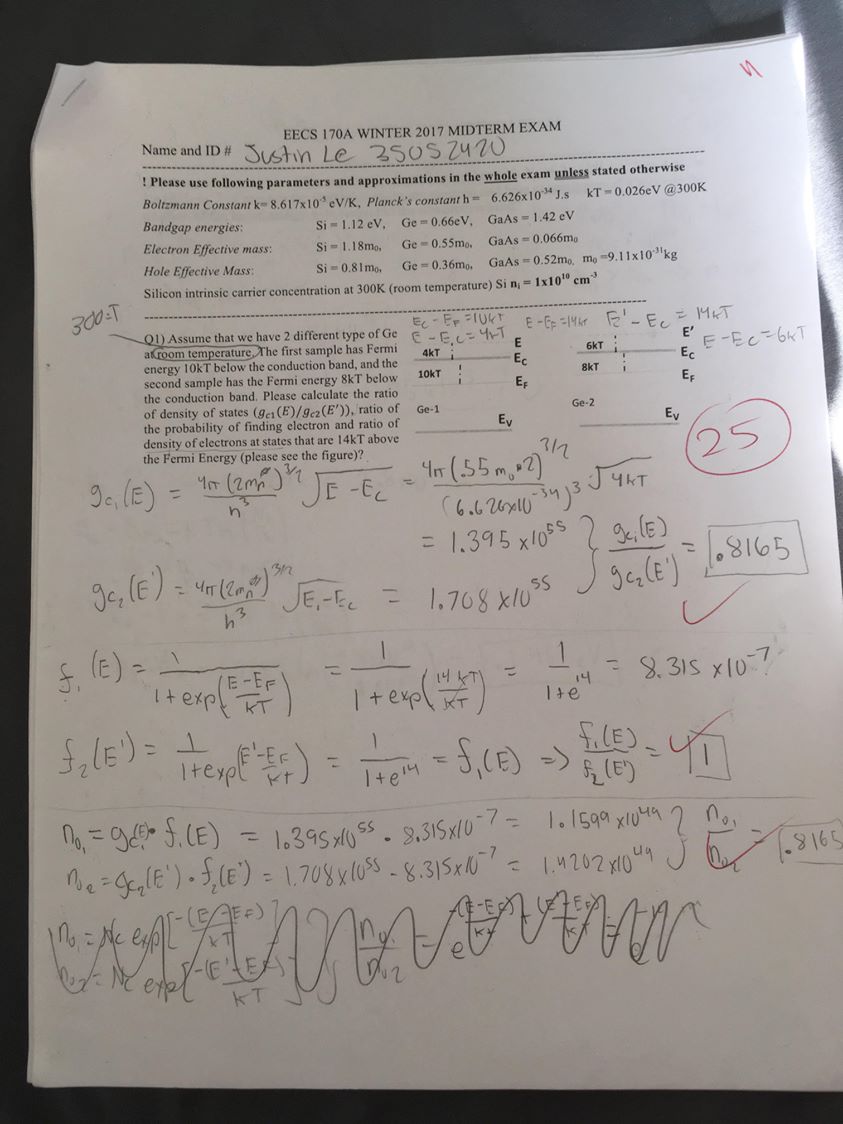 EECS 170A WINTER 2017 MIDTERM EXAM
Name and ID # Justin Le 35052420
! Please use following parameters and approximations in the whole exam unless stated otherwise
Boltzmann Constant k= 8.617x10⁻⁵ eV/K, Planck's constant h = 6.626x10⁻³⁴ J.s kT = 0.026eV @300K
Bandgap energies: Si = 1.12 eV, Ge = 0.66eV, GaAs = 1.42 eV
Electron Effective mass: Si = 1.18m₀, Ge = 0.55m₀, GaAs = 0.066m₀
Hole Effective Mass: Si = 0.81m₀, Ge = 0.36m₀, GaAs = 0.52m₀, m₀ =9.11x10⁻³¹kg
Silicon intrinsic carrier concentration at 300K (room temperature) Si nᵢ = 1x10¹⁰ cm⁻³
300=T
Q1) Assume that we have 2 different type of Ge
at room temperature. The first sample has Fermi
energy 10kT below the conduction band, and the
second sample has the Fermi energy 8kT below
the conduction band. Please calculate the ratio
of density of states (g_c1(E)/g_c2(E')), ratio of
the probability of finding electron and ratio of
density of electrons at states that are 14kT above
the Fermi Energy (please see the figure)?
E_C - E_F = 10kT E - E_F = 14kT E' - E_C = 14kT
E - E_C = 4kT
E - E_C = 6kT
4kT E
E_C
10kT
E_F
Ge-1
E_V
6kT E'
E_C
8kT
E_F
Ge-2
E_V
25
g_c1(E) = 4π(2m_n*)^3/2 / h³ √E - E_C = 4π(.55 m₀•2)^3/2 / (6.626x10⁻³⁴)³ √4kT
= 1.395 x10⁵⁵
g_c1(E) / g_c2(E') = .8165
g_c2(E') = 4π(2m_n*)^3/2 / h³ √E, - E_C = 1.708 x10⁵⁵
f₁(E) = 1 / 1 + exp(E - E_F / kT) = 1 / 1 + exp(14 kT / kT) = 1 / 1+e¹⁴ = 8.315 x10⁻⁷
f₂(E') = 1 / 1+exp(E' - E_F / kT) = 1 / 1+e¹⁴ = f₁(E) => f₁(E) / f₂(E') = 1
n₀₁ = g_c1(E)• f₁(E) = 1.395x10⁵⁵ • 8.315x10⁻⁷ = 1.1599 x10⁴⁹
n₀₂ = g_c2(E') • f₂(E') = 1.708x10⁵⁵ - 8.315x10⁻⁷ = 1.4202 x10⁴⁹
n₀₁ / n₀₂ = .8165
n₀₁ = Nc exp[-(E - E_F) / kT]
n₀₂ = Nc exp[-(E' - E_F) / kT]
n₀₁ / n₀₂ =